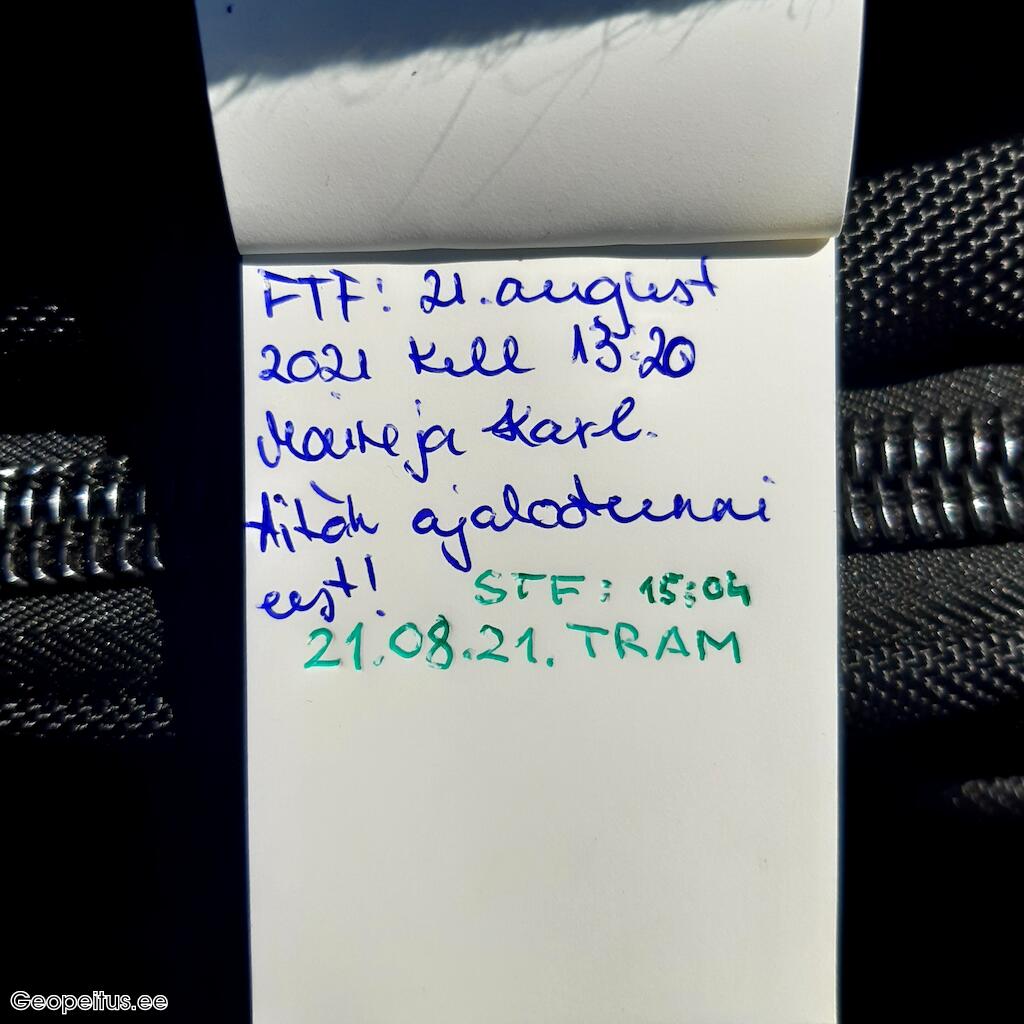 FTF: 21. august
2021 kell 13:20
ja Karl.
Aitäh ajalootunni
eest!
STF: 15:04
21.08.21. TRAM
Geopeitus.ee